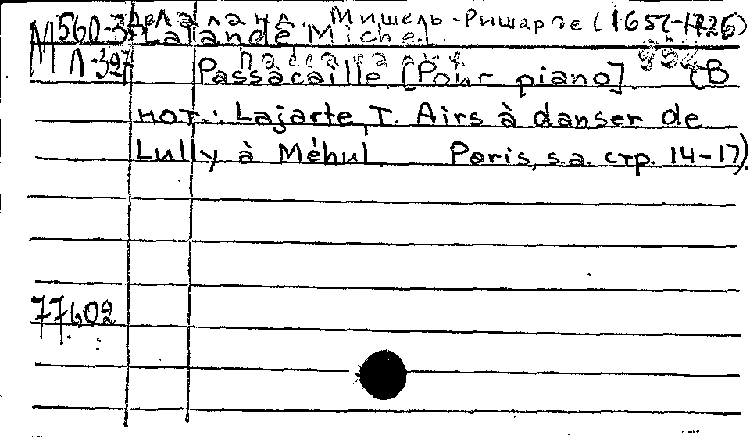 М560-3 Делаланд, Мишель-Ришар де (1657-1726)
Lalande Michel
М Л-327 Пассакалия
Passacaille [Pour piano] (В
нот.: Lajarte, T. Airs à danser de
Lully à Méhul Paris, s.a. стр. 14-17).
77602